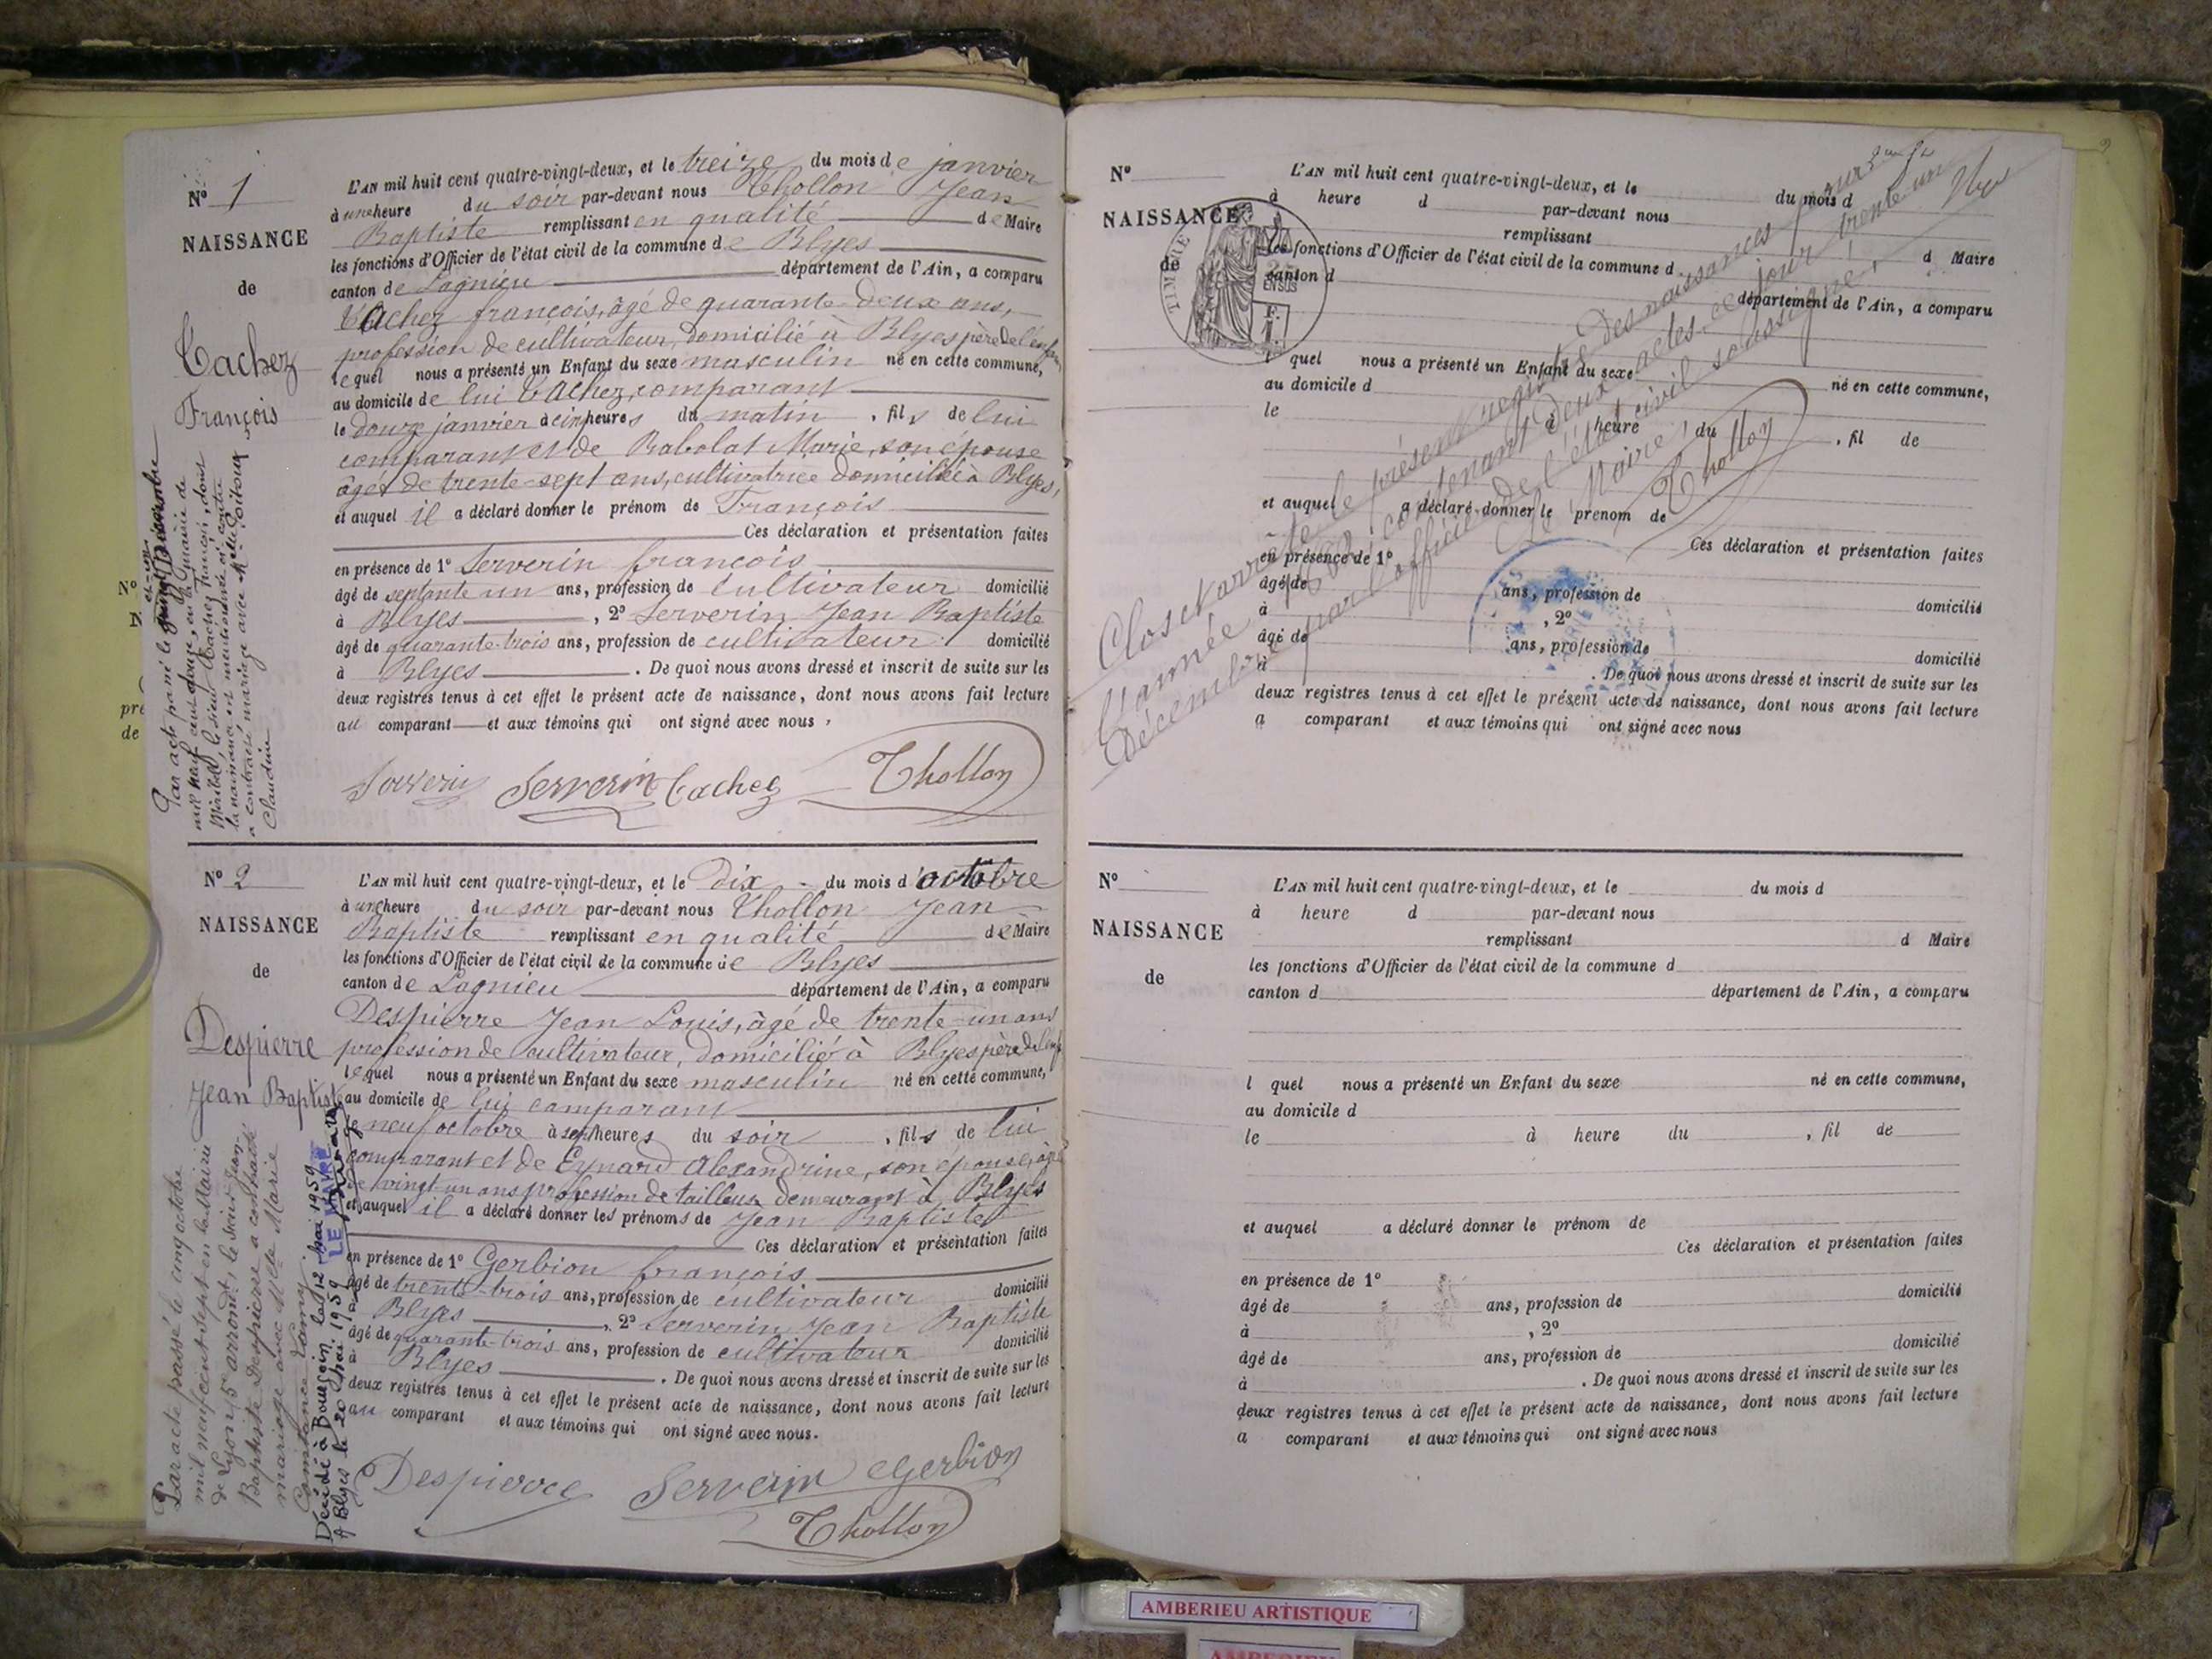 N° 1
NAISSANCE
de
Cachez
François
L'AN mil huit cent quatre-vingt-deux, et le treize du mois de janvier
à une heure du soir par-devant nous Thollon Jean
Baptiste remplissant en qualité de Maire
les fonctions d'Officier de l'état civil de la commune de Blyes
canton de Lagnieu département de l'Ain, a comparu
Cachez françois, âgé de quarante-deux ans,
profession de cultivateur, domicilié à Blyes père de l'enfant
lequel nous a présenté un Enfant du sexe masculin né en cette commune,
au domicile de lui Cachez, comparant
le douze janvier à cinq heures du matin, fils de lui
comparant et de Rabolat Marie, son épouse
âgée de trente-sept ans, cultivatrice domiciliée à Blyes,
et auquel il a déclaré donner le prénom de François
Ces déclaration et présentation faites
en présence de 1° Serverin françois
âgé de septante un ans, profession de cultivateur domicilié
à Blyes, 2° Serverin Jean Baptiste
âgé de quarante-trois ans, profession de cultivateur domicilié
à Blyes. De quoi nous avons dressé et inscrit de suite sur les
deux registres tenus à cet effet le présent acte de naissance, dont nous avons fait lecture
au comparant et aux témoins qui ont signé avec nous.
Serverin Cachez Thollon
Par acte passé le
mil neuf cent en la mairie de
Miribel, le sieur Cachez François, dont
la naissance est mentionnée ci contre
a contracté mariage avec Melle
Claudine
N° 2
NAISSANCE
de
Despierre
Jean Baptiste
L'AN mil huit cent quatre-vingt-deux, et le dix du mois d'octobre
à une heure du soir par-devant nous Thollon Jean
Baptiste remplissant en qualité de Maire
les fonctions d'Officier de l'état civil de la commune de Blyes
canton de Lagnieu département de l'Ain, a comparu
Despierre Jean Louis, âgé de trente-un ans
profession de cultivateur, domicilié à Blyes père de l'enf
lequel nous a présenté un Enfant du sexe masculin né en cette commune,
au domicile de lui comparant
le neuf octobre à sept heures du soir, fils de lui
comparant et de Eynard Alexandrine, son épouse, âgée
de vingt-un ans profession de tailleuse demeurant à Blyes
et auquel il a déclaré donner les prénoms de Jean Baptiste
Ces déclaration et présentation faites
en présence de 1° Gerbion françois
âgé de trente-trois ans, profession de cultivateur domicilié
à Blyes, 2° Serverin Jean Baptiste
âgé de quarante-trois ans, profession de cultivateur domicilié
à Blyes. De quoi nous avons dressé et inscrit de suite sur les
deux registres tenus à cet effet le présent acte de naissance, dont nous avons fait lecture
au comparant et aux témoins qui ont signé avec nous.
Despierre Serverin Gerbion
Thollon
Par acte passé le cinq octobre
mil neuf cent sept en la Mairie
de Lyon, 5e arrondt, le sieur Jean
Baptiste Despierre a contracté
mariage avec Melle Marie
Constance
Décédé à Bourgoin le 12 mai 1959
A Blyes le 20 mai 1959 LE MAIRE
N°
NAISSANCE
de
TIMBRE
L'AN mil huit cent quatre-vingt-deux, et le du mois d
à heure d par-devant nous
remplissant d Maire
les fonctions d'Officier de l'état civil de la commune d
canton d département de l'Ain, a comparu
l quel nous a présenté un Enfant du sexe né en cette commune,
au domicile d
le à heure du , fil de
et auquel a déclaré donner le prénom de
Ces déclaration et présentation faites
en présence de 1°
âgé de ans, profession de domicilié
à , 2°
âgé de ans, profession de domicilié
à . De quoi nous avons dressé et inscrit de suite sur les
deux registres tenus à cet effet le présent acte de naissance, dont nous avons fait lecture
a comparant et aux témoins qui ont signé avec nous
Clos et arrêté le présent registre des naissances pour
l'année 1882, contenant deux actes, ce jour trente un
décembre par l'officier de l'état civil soussigné.
Le Maire
Thollon
N°
NAISSANCE
de
L'AN mil huit cent quatre-vingt-deux, et le du mois d
à heure d par-devant nous
remplissant d Maire
les fonctions d'Officier de l'état civil de la commune d
canton d département de l'Ain, a comparu
l quel nous a présenté un Enfant du sexe né en cette commune,
au domicile d
le à heure du , fil de
et auquel a déclaré donner le prénom de
Ces déclaration et présentation faites
en présence de 1°
âgé de ans, profession de domicilié
à , 2°
âgé de ans, profession de domicilié
à . De quoi nous avons dressé et inscrit de suite sur les
deux registres tenus à cet effet le présent acte de naissance, dont nous avons fait lecture
a comparant et aux témoins qui ont signé avec nous
AMBERIEU ARTISTIQUE
AMBERIEU